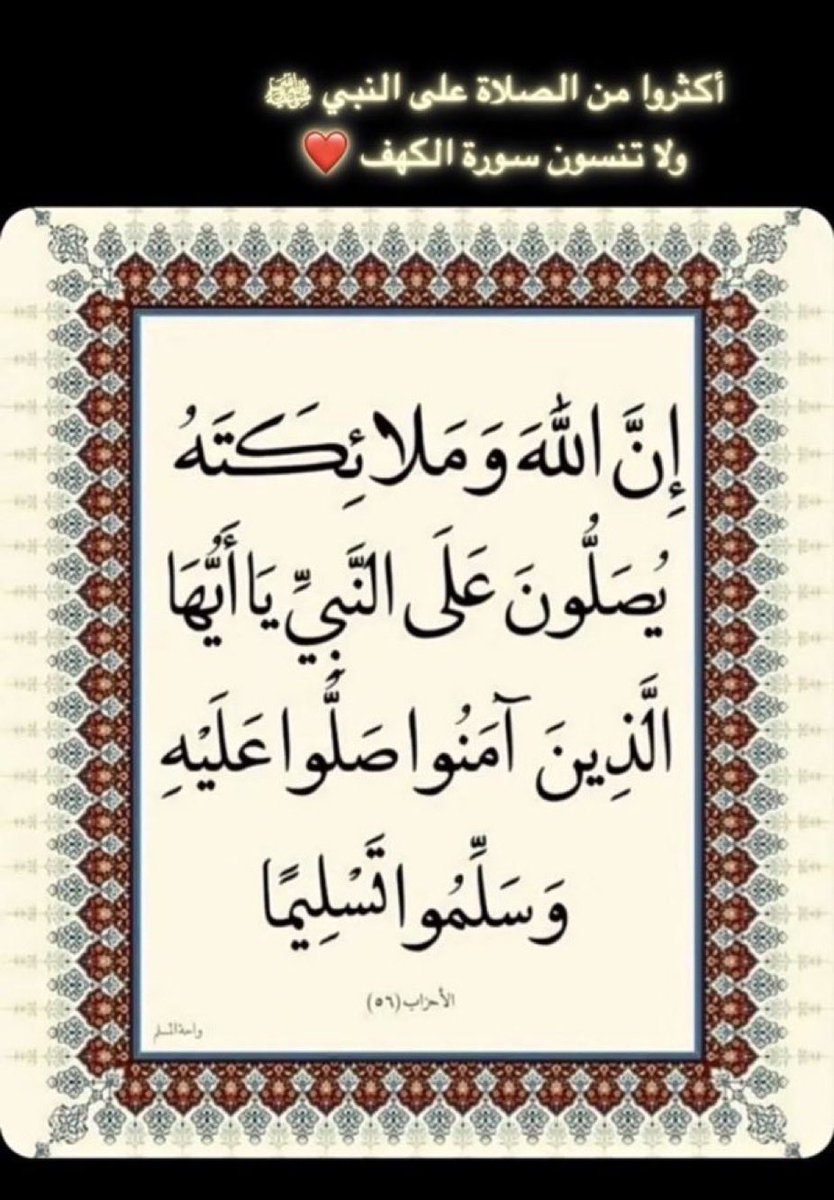 أكثروا من الصلاة على النبي ﷺ
ولا تنسون سورة الكهف ❤️
إِنَّ اللَّهَ وَمَلائِكَتَهُ
يُصَلُّونَ عَلَى النَّبِيِّ يَا أَيُّهَا
الَّذِينَ آمَنُوا صَلُّوا عَلَيْهِ
وَسَلِّمُوا تَسْلِيمًا
الأحزاب (٥٦)
واحة المسلم